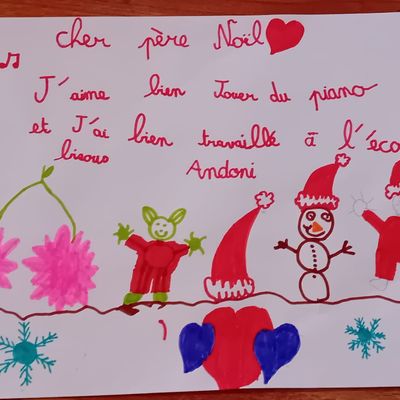 cher père Noël
J'aime bien Jouer du piano
et J'ai bien travaillé à l'éco
bisous
Andoni